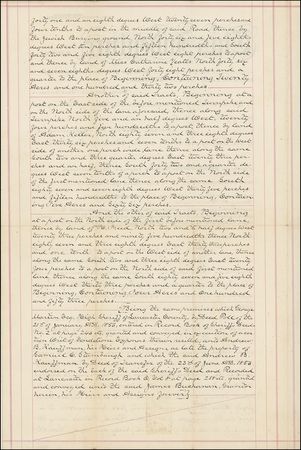 forty one and an eighth degrees West twenty seven perches and
four tenths to a post in the middle of said Road thence by
the Jewish Burying ground North forty six and five eighths
degrees West ten perches and fifteen hundredths and South
forty two and five eighths degrees West eight perches to a post
and thence by land of Miss Catharine Yeates North forty six
and seven eighths degrees West forty eight perches and a
quarter to the place of Beginning, Containing Twenty
Acres and one hundred and thirty two perches
Another of said tracts, Beginning at a
post on the East side of the before mentioned Turnpike and
on the North side of the lane, thence along said
Turnpike North five and an half degrees West, twenty
four perches and five hundredths to a post, thence by land
of Adam Keller, North eighty seven and three eighths degrees
East thirty six perches and seven tenths to a post on the west
side of another one perch wide lane, thence along the same
South two and three quarter degrees East twenty three per-
ches and an half, thence South forty two and a quarter de-
grees West seven tenths of a perch to a post on the North side
of the first mentioned lane, thence along the same South
eighty seven and seven eighths degrees West thirty five perches
and fifteen hundredths to the place of Beginning, Contain-
ing five Acres and sixty six perches
And the other of said tracts, Beginning
at a post on the North side of the first before mentioned lane,
thence by land of North two and a half degrees West
twenty three perches and ninety five hundredths thence North
eighty seven and three eighths degrees East thirty three perches
and one tenth to a post on the West side of another lane, thence
along the same South two and three eighths degrees East twenty
four perches to a post on the North side of said first mentioned
lane, thence along the same South eighty seven and five eighths
degrees West thirty three perches and a quarter to the place of
Beginning, Containing four Acres and one hundred
and fifty three perches.
Being the same premises which George
Martin Esq. High Sheriff of Lancaster County, by Deed Poll of the
21st of January A.D. 1851, entered in Record Book of Sheriff's Deeds
No. 2 at page granted and conveyed in execution of a cer-
tain Writ of Venditioni Exponas therein recited, unto Andrew
B. Kauffman, his Heirs and Assigns, as late the property of
Samuel C. Stambaugh, and which the said Andrew B.
Kauffman by Deed of transfer of the 23rd of June A.D. 1852
endorsed on the back of the said Sheriff's Deed and Recorded
at Lancaster in Record Book page granted
and conveyed unto the said James Buchanan, Grantor
herein, his Heirs and Assigns forever}